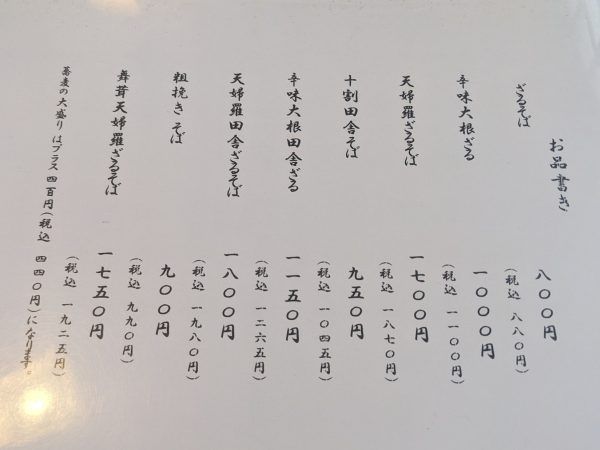 お品書き
ざるそば
八〇〇円
(税込 八八〇円)
辛味大根ざる
一〇〇〇円
(税込 一一〇〇円)
天婦羅ざるそば
一七〇〇円
(税込 一八七〇円)
十割田舎そば
九五〇円
(税込 一〇四五円)
辛味大根田舎ざる
一一五〇円
(税込 一二六五円)
天婦羅田舎ざるそば
一八〇〇円
(税込 一九八〇円)
粗挽きそば
九〇〇円
(税込 九九〇円)
舞茸天婦羅ざるそば
一七五〇円
(税込 一九二五円)
蕎麦の大盛りはプラス四百円(税込 四四〇円)になります。